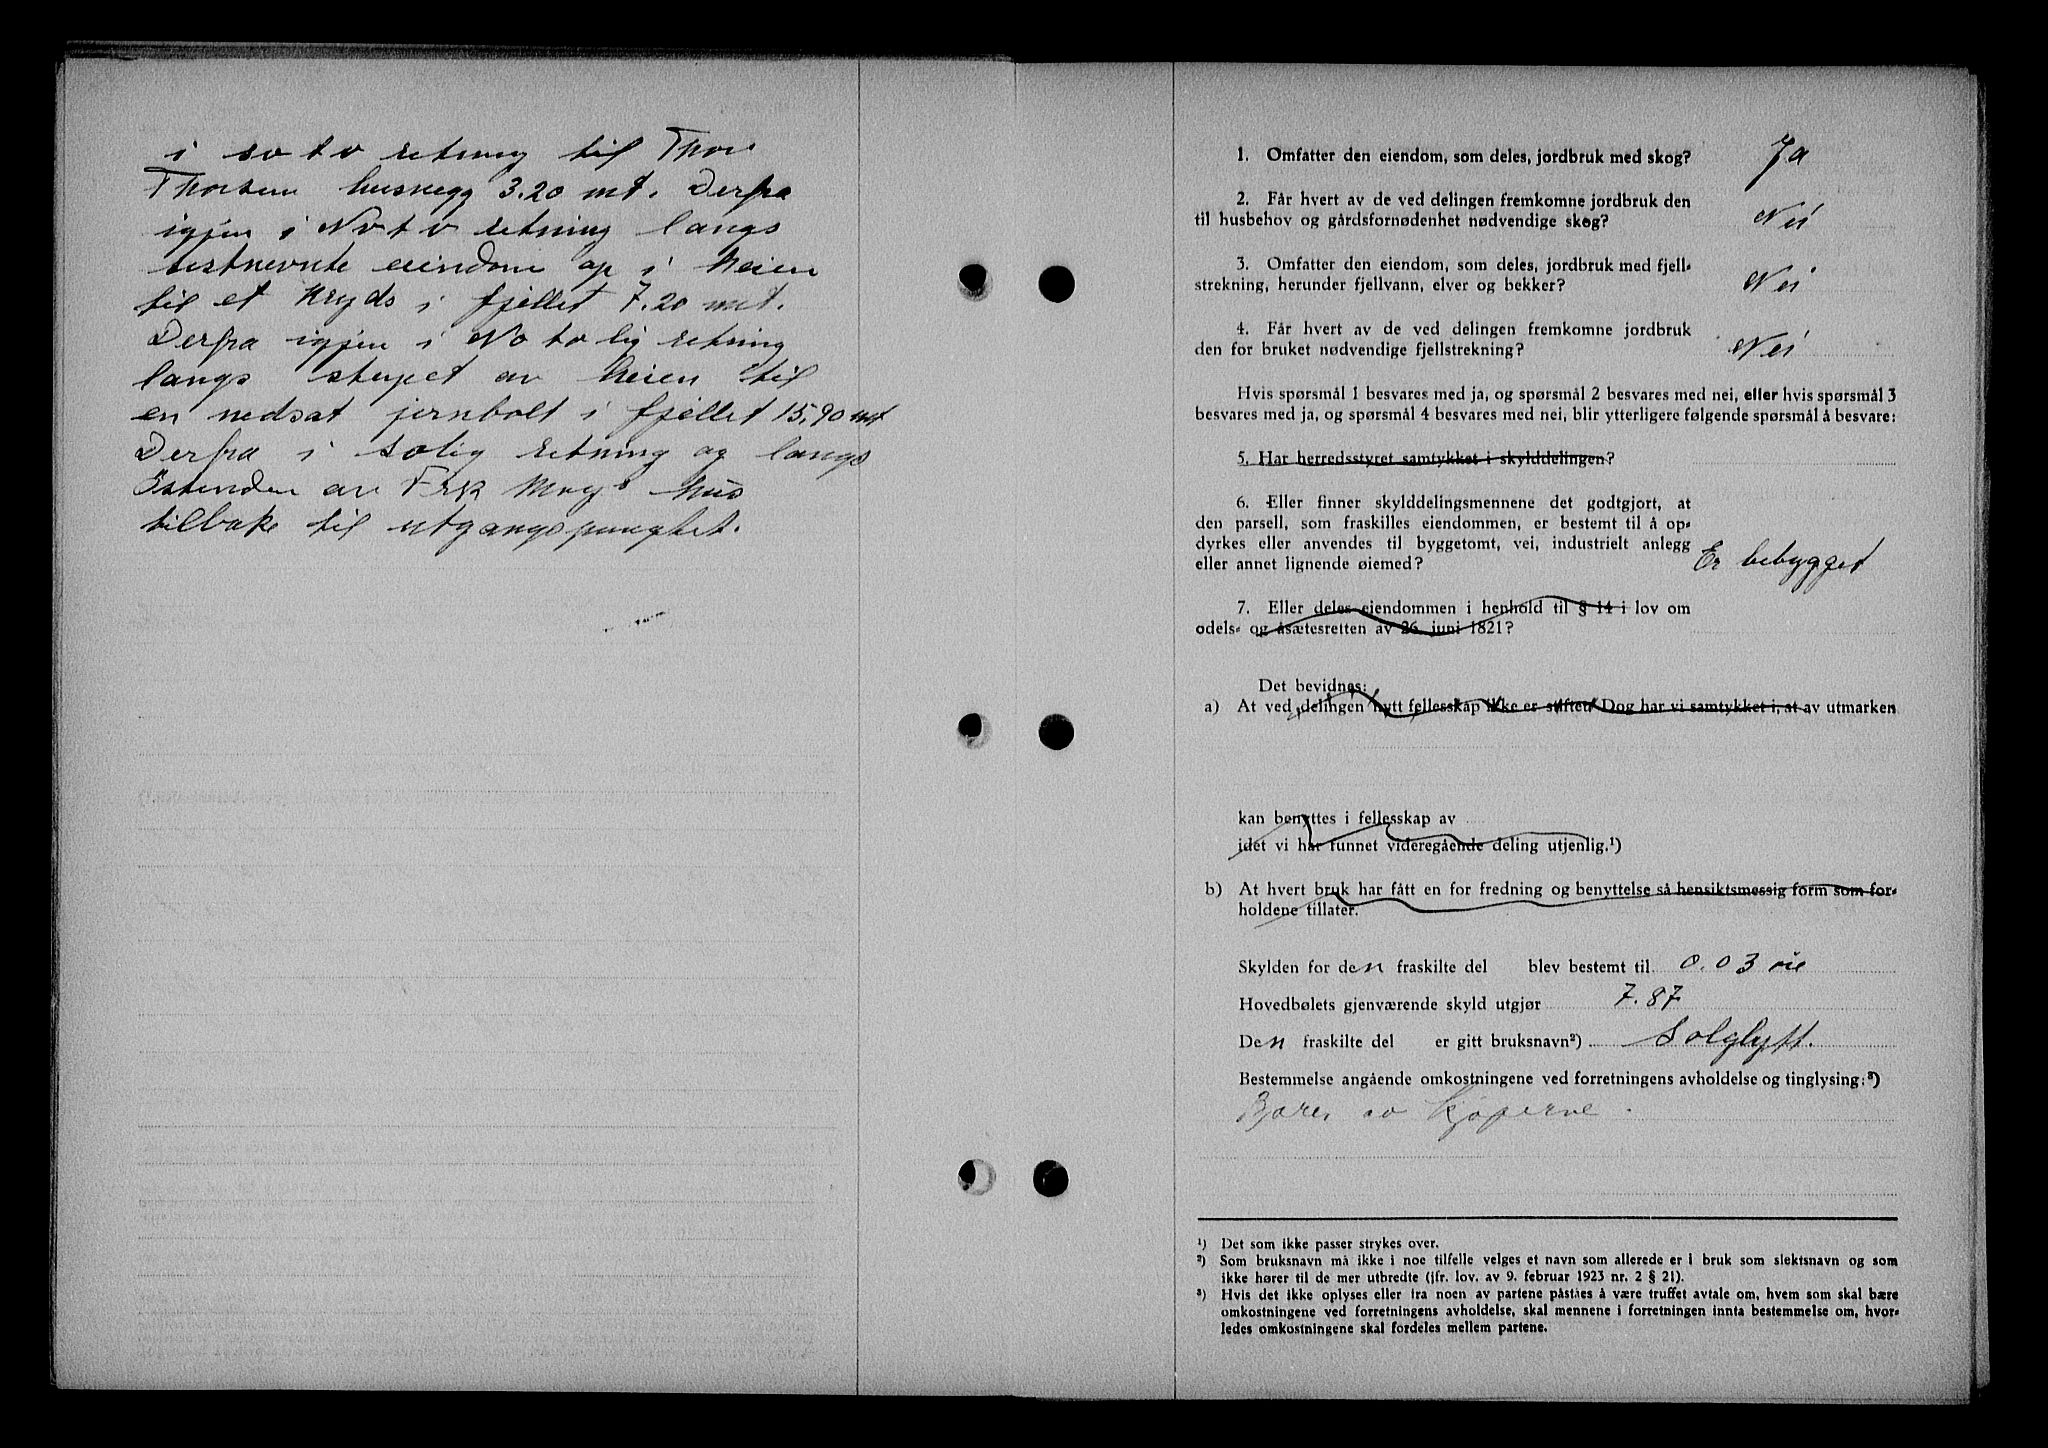 i so t o retning til Thor
Thorsen husvegg 3.20 mt. Derfra
igjen i No t o retning langs
sistnevnte eiendom op i heien
til et kryds i fjellet 7.20 mt.
Derfra igjen i No to lig retning
langs stupet av heien til
en nedsat jernbolt i fjellet 15,90 mt
Derfra i solig retning og langs
Østenden av Frk Moys hus
tilbake til utgangspunghtet.
1. Omfatter den eiendom, som deles, jordbruk med skog? Ja
2. Får hvert av de ved delingen fremkomne jordbruk den
til husbehov og gårdsfornødenhet nødvendige skog? Nei
3. Omfatter den eiendom, som deles, jordbruk med fjell-
strekning, herunder fjellvann, elver og bekker? Nei
4. Får hvert av de ved delingen fremkomne jordbruk
den for bruket nødvendige fjellstrekning? Nei
Hvis spørsmål 1 besvares med ja, og spørsmål 2 besvares med nei, eller hvis spørsmål 3
besvares med ja, og spørsmål 4 besvares med nei, blir ytterligere følgende spørsmål å besvare:
5. Har herredsstyret samtykket i skylddelingen?
6. Eller finner skylddelingsmennene det godtgjort, at
den parsell, som fraskilles eiendommen, er bestemt til å op-
dyrkes eller anvendes til byggetomt, vei, industrielt anlegg
eller annet lignende øiemed? Er bebygget
7. Eller deles eiendommen i henhold til § 14 i lov om
odels- og åsætesretten av 26 juni 1821?
Det bevidnes:
a) At ved delingen nytt fellesskap ikke er stiftet. Dog har vi samtykket i, at av utmarken
kan benyttes i fellesskap av
idet vi har funnet videregående deling utjenlig.¹)
b) At hvert bruk har fått en for fredning og benyttelse så hensiktsmessig form som for-
holdene tillater.
Skylden for den fraskilte del blev bestemt til 0.03 øre
Hovedbølets gjenværende skyld utgjør 7.87
Den fraskilte del er gitt bruksnavn²) Solglytt.
Bestemmelse angående omkostningene ved forretningens avholdelse og tinglysing:³)
Bæres av kjøperne.
¹) Det som ikke passer strykes over.
²) Som bruksnavn må ikke i noe tilfelle velges et navn som allerede er i bruk som slektsnavn og som
ikke hører til de mer utbredte (jfr. lov. av 9. februar 1923 nr. 2 § 21).
³) Hvis det ikke oplyses eller fra noen av partene påståes å være truffet avtale om, hvem som skal bære
omkostningene ved forretningens avholdelse, skal mennene i forretningen innta bestemmelse om, hvor-
ledes omkostningene skal fordeles mellem partene.